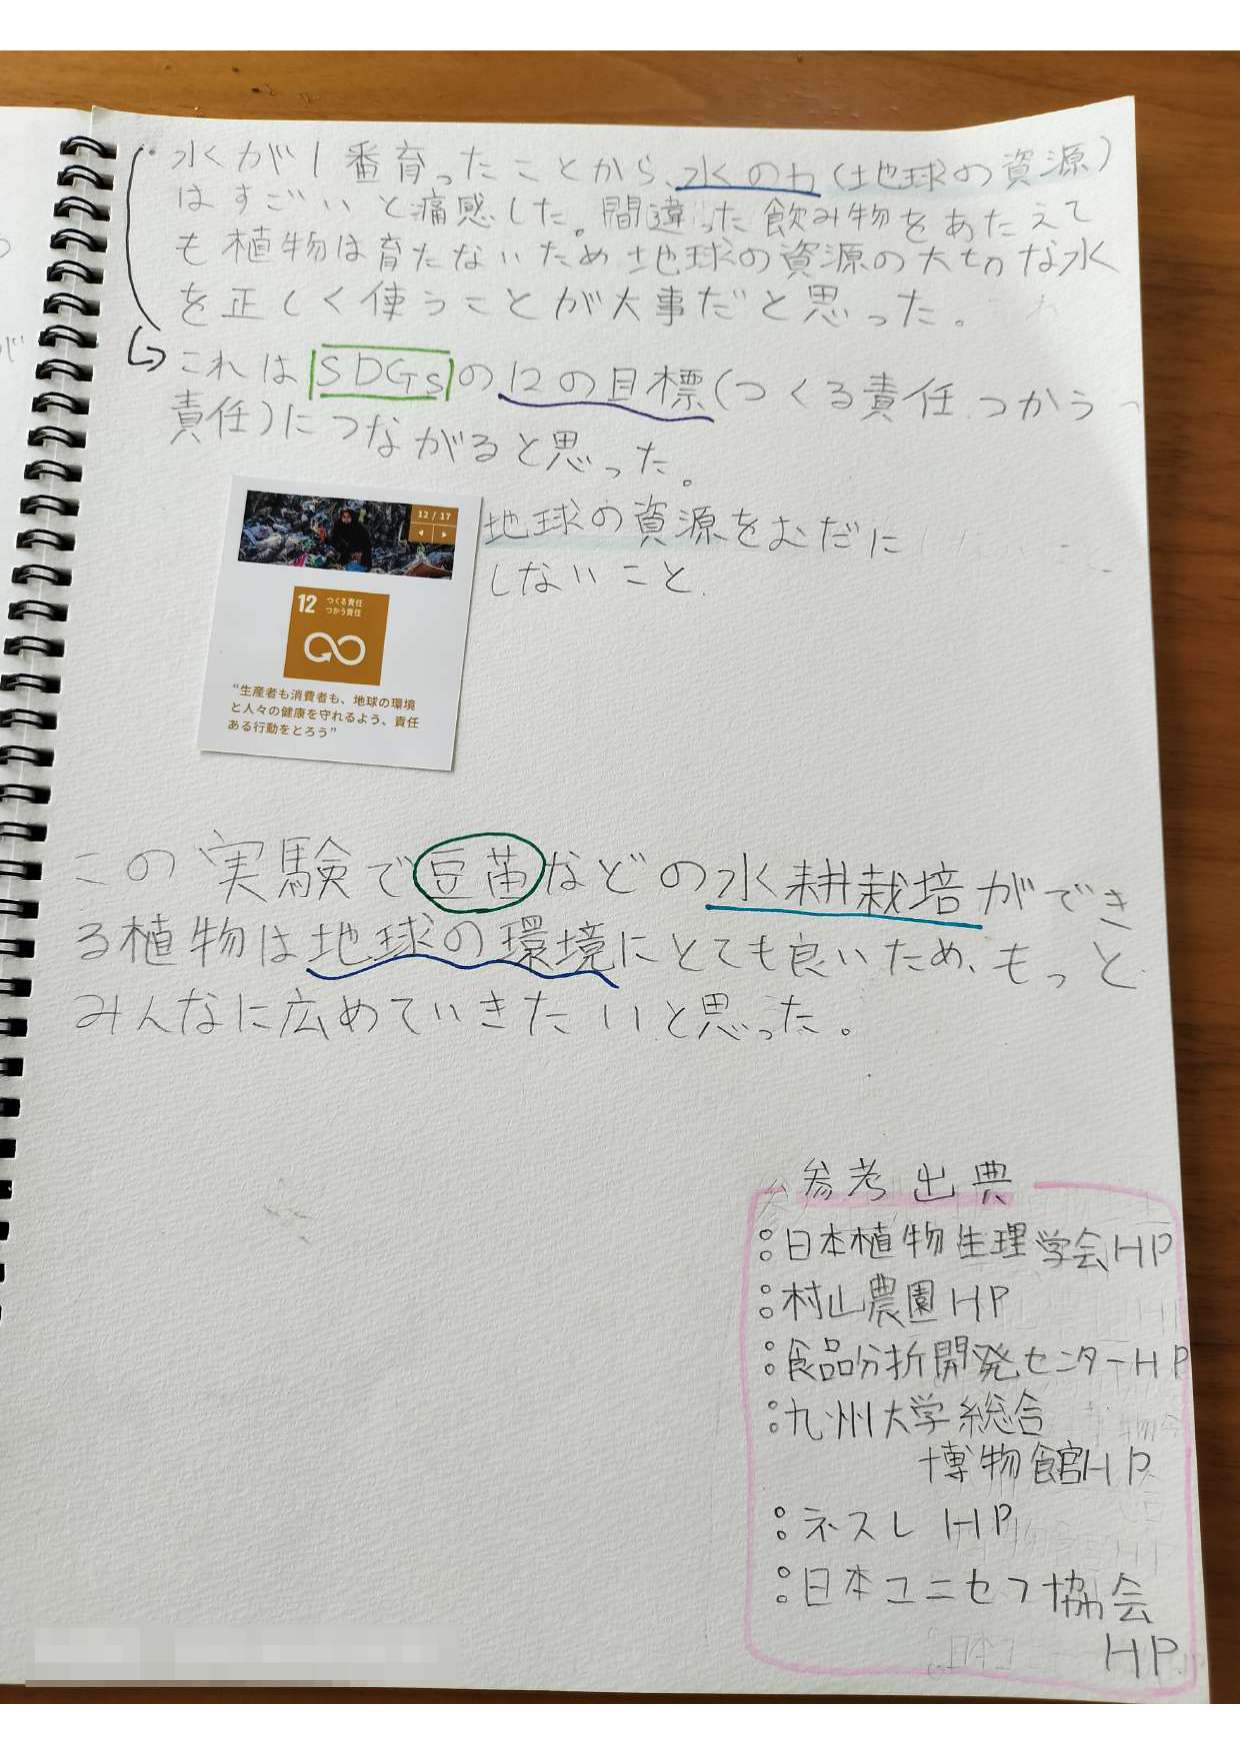 ・水が1番育ったことから、水の力(地球の資源)
はすごいと痛感した。間違った飲み物をあたえて
も植物は育たないため地球の資源の大切な水
を正しく使うことが大事だと思った。
これはSDGsの12の目標(つくる責任つかう
責任)につながると思った。
12 / 17
地球の資源をむだに
しないこと.
12 つくる責任
つかう責任
“生産者も消費者も、地球の環境
と人々の健康を守れるよう、責任
ある行動をとろう”
この実験で豆苗などの水耕栽培ができ
る植物は地球の環境にとても良いため、もっと
みんなに広めていきたいと思った。
参考出典
:日本植物生理学会HP
:村山農園HP
:食品分折開発センターHP
:九州大学総合
博物館HP
:ネスレ HP
:日本ユニセフ協会
HP